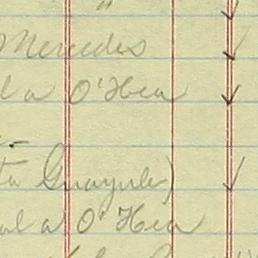 "
Mercedes
l a O'Hea
ta Guayule)
al a O'Hea